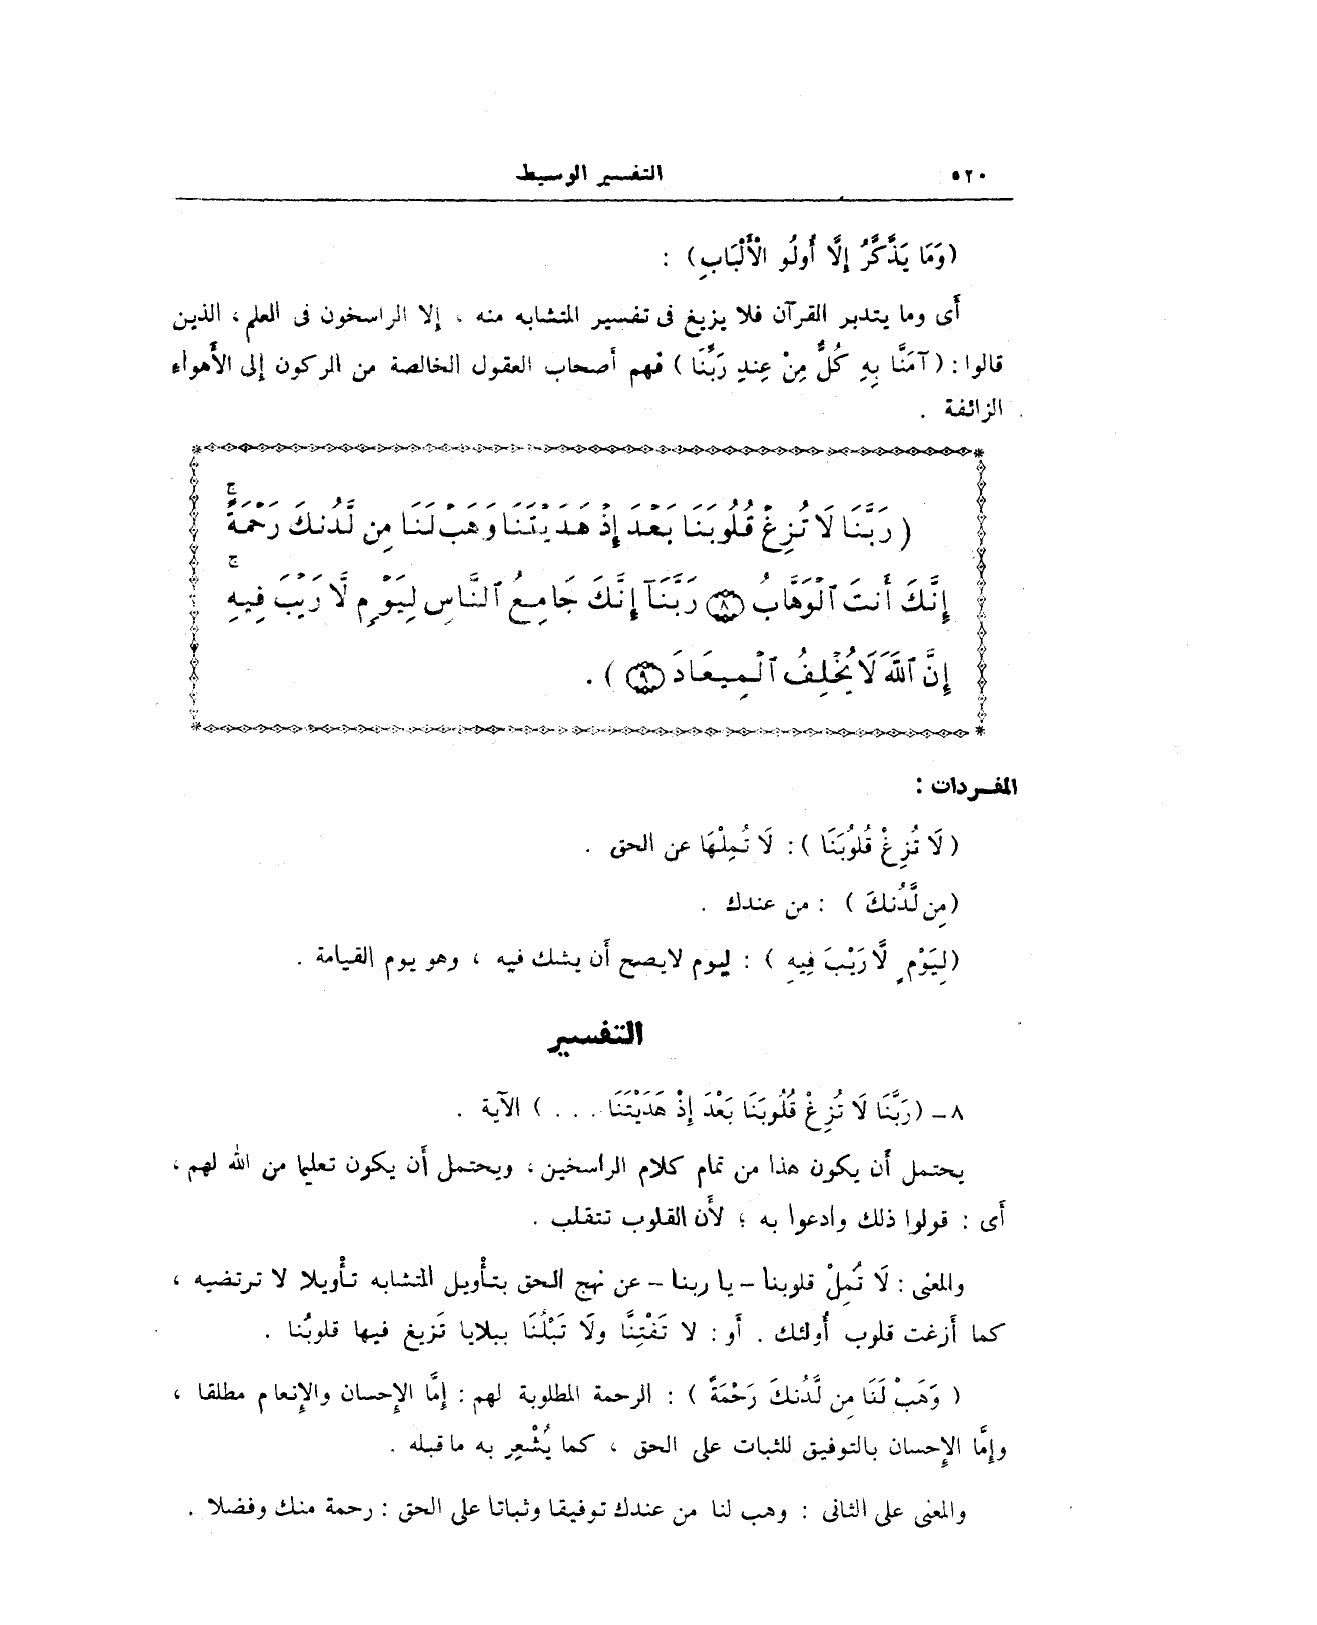 ٥٢٠ التفسير الوسيط
(وَمَا يَذَّكَّرُ إِلَّا أُولُو الْأَلْبَابِ) :
أَى وما يتدبر القرآن فلا يزيغ فى تفسير المتشابه منه ، إلا الراسخون فى العلم ، الذين
قالوا : ( آمَنَّا بِهِ كُلٌّ مِنْ عِندِ رَبِّنَا ) فهم أصحاب العقول الخالصة من الركون إلى الأهواء
الزائفة .
( رَبَّنَا لَا تُزِغْ قُلُوبَنَا بَعْدَ إِذْ هَدَيْتَنَا وَهَبْ لَنَا مِن لَّدُنكَ رَحْمَةً ۚ
إِنَّكَ أَنتَ ٱلْوَهَّابُ ٨ رَبَّنَآ إِنَّكَ جَامِعُ ٱلنَّاسِ لِيَوْمٍ لَّا رَيْبَ فِيهِ ۚ
إِنَّ ٱللَّهَ لَا يُخْلِفُ ٱلْمِيعَادَ ٩ ) .
المفـردات :
(لَا تُزِغْ قُلُوبَنَا ) : لَا تُمِلْهَا عن الحق .
(مِن لَّدُنكَ ) : من عندك .
(لِيَوْمٍ لَّا رَيْبَ فِيهِ ) : ليوم لايصح أَن يشك فيه ، وهو يوم القيامة .
التفسير
٨ - (رَبَّنَا لَا تُزِغْ قُلُوبَنَا بَعْدَ إِذْ هَدَيْتَنَا . . . ) الآية .
يحتمل أَن يكون هذا من تمام كلام الراسخين ، ويحتمل أَن يكون تعليما من الله لهم ،
أَى : قولوا ذلك وادعوا به ؛ لأَن القلوب تتقلب .
والمعنى : لَا تُمِلْ قلوبنا - يا ربنا - عن نهج الحق بتأْويل المتشابه تأْويلا لا ترتضيه ،
كما أَزغت قلوب أُولئك . أو : لا تَفْتِنَّا ولَا تَبْلُنَا ببلايا تَزيغ فيها قلوبُنا .
( وَهَبْ لَنَا مِن لَّدُنكَ رَحْمَةً ) : الرحمة المطلوبة لهم : إِمَّا الإِحسان والإِنعام مطلقا ،
وإِمَّا الإِحسان بالتوفيق للثبات على الحق ، كما يُشْعِر به ما قبله .
والمعنى على الثانى : وهب لنا من عندك توفيقا وثباتا على الحق : رحمة منك وفضلا .